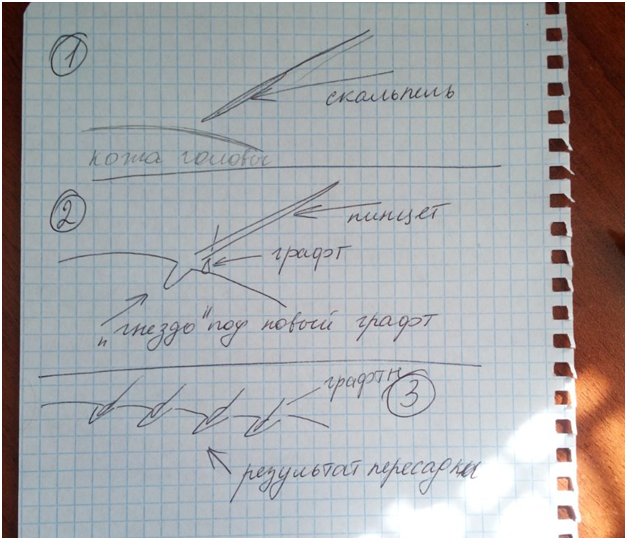 1
скальпель
кожа головы
2
пинцет
графт
"гнездо" под новый графт
графты
3
результат пересадки